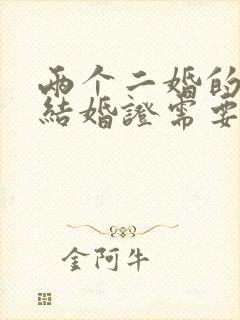 兩个二婚的
結婚證需要
金阿牛